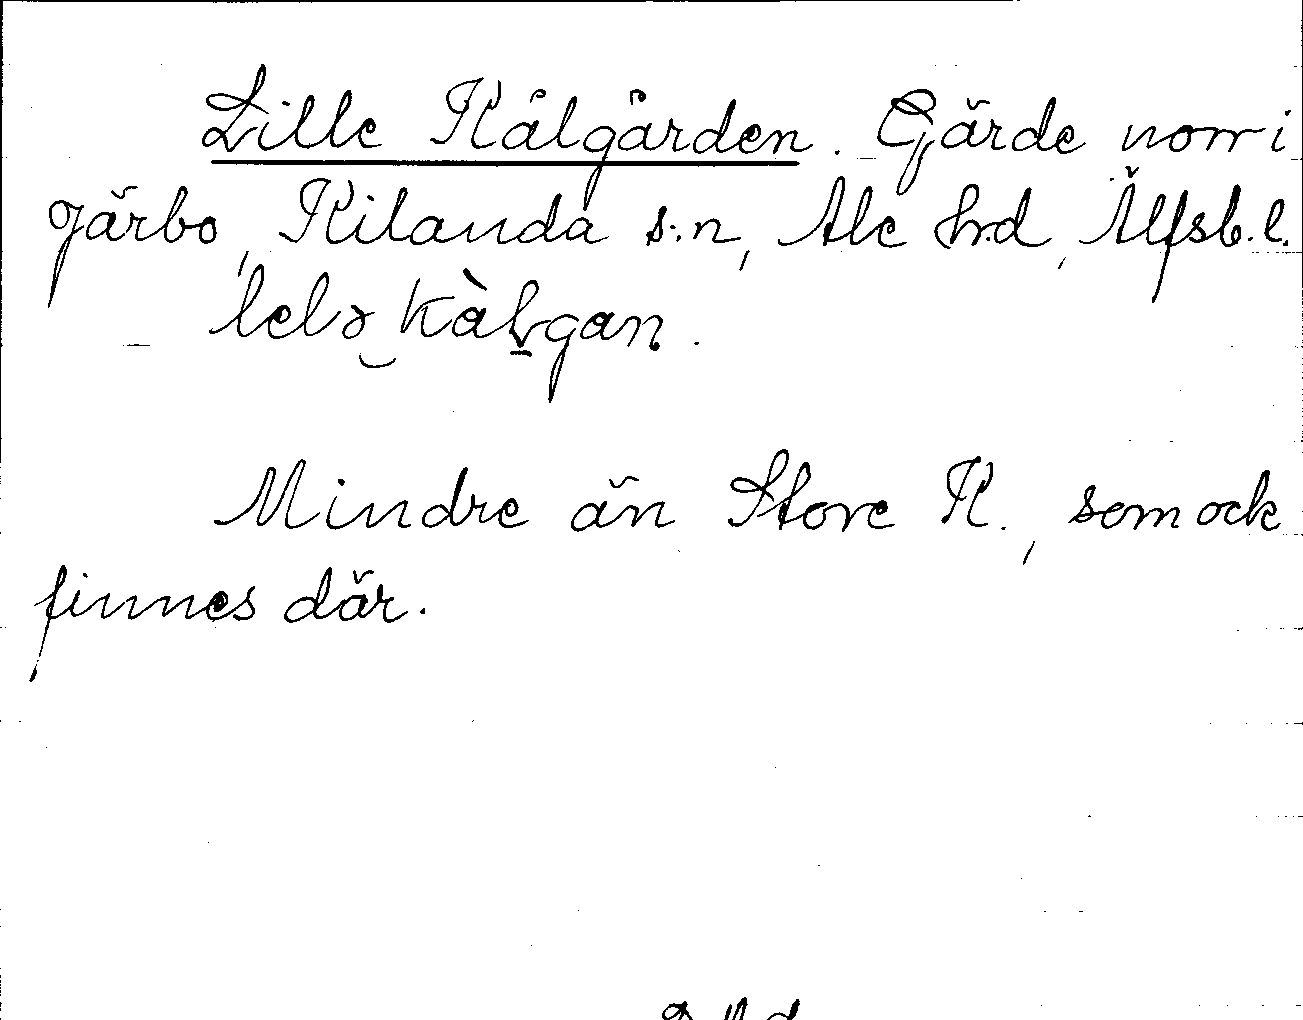 Lille Kålgården. Gärde norr i
Järbo, Kilanda s:n, Ale h:d, Älfsb. l.
lelə kàlgan.
Mindre än Store K., som ock
finnes där.